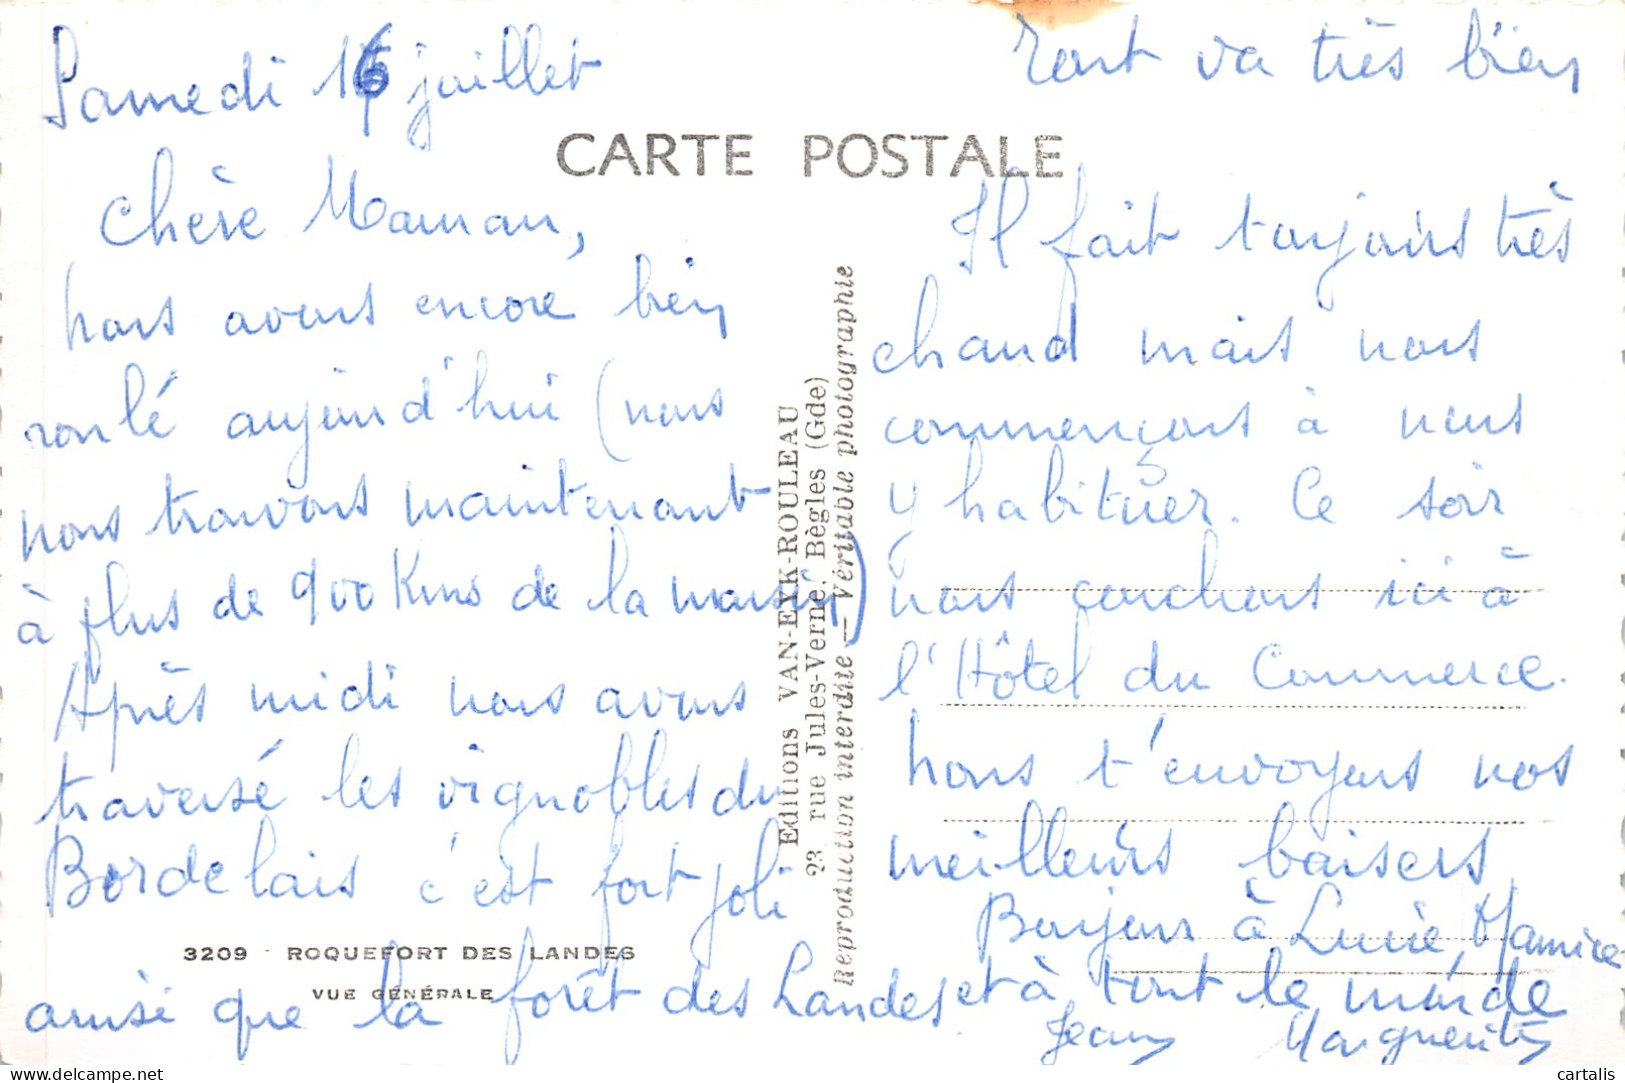 Samedi 16 juillet
Chère Maman,
nous avons encore bien
roulé aujourd'hui (nous
nous trouvons maintenant
à plus de 900 Kms de la maison)
Après midi nous avons
traversé les vignobles du
Bordelais c'est fort joli
ainsi que la forêt des Landes
Tout va très bien
Il fait toujours très
chaud mais nous
commençons à nous
y habituer. Ce soir
nous couchons ici à
l'Hôtel du Commerce.
Nous t'envoyons nos
meilleurs baisers
Bonjour à Lucie Maurice
et à tout le monde
Jean Marguerite
CARTE POSTALE
Editions VAN-EYK-ROULEAU
23, rue Jules-Verne, Bègles (Gde)
Reproduction interdite — Véritable photographie
3209 - ROQUEFORT DES LANDES
VUE GÉNÉRALE
cartalis